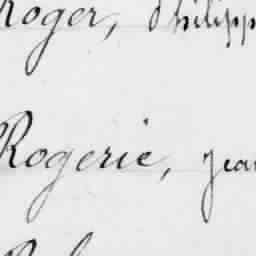 Roger, Philipp
Rogerie, Jean